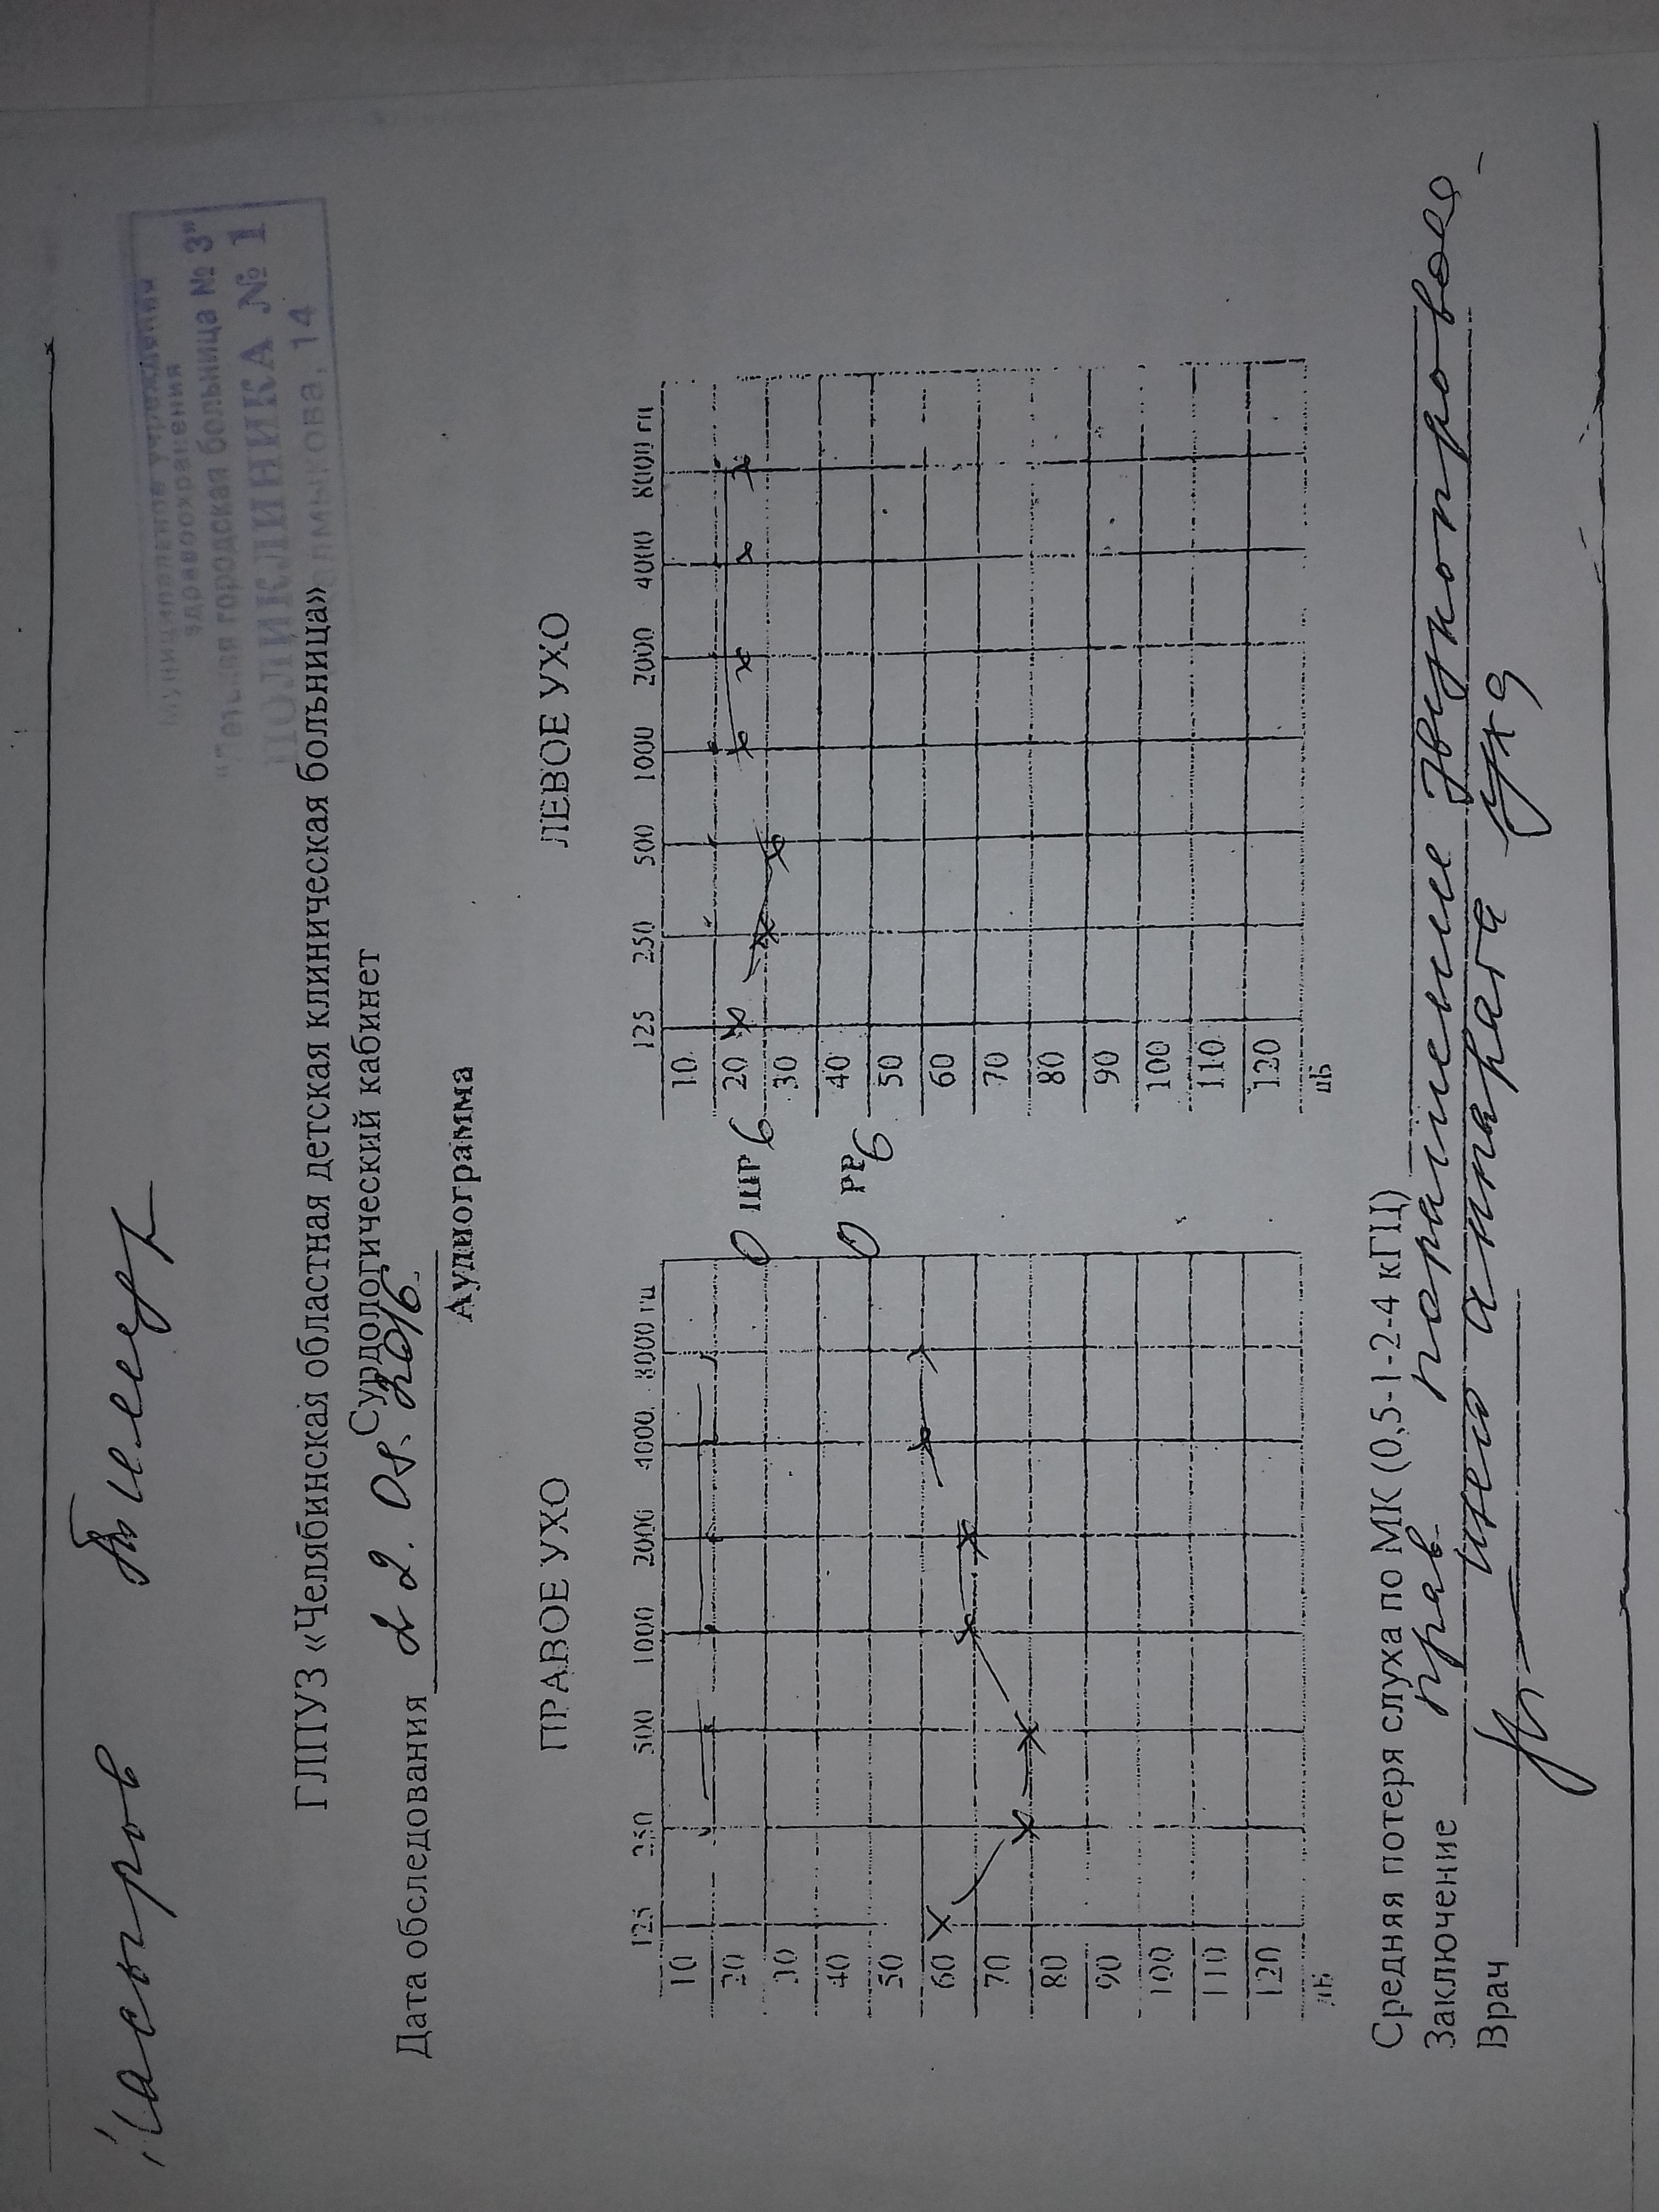 Тимур
Муниципальное учреждение
здравоохранения
городская больница № 3"
ПОЛИКЛИНИКА № 1
14
ГЛПУЗ «Челябинская областная детская клиническая больница»
Сурдологический кабинет
Дата обследования 22. 2016
Аудиограмма
ПРАВОЕ УХО
ЛЕВОЕ УХО
125 250 500 1000 2000 4000 8000 гц
125 250 500 1000 2000 4000 8000 гц
10
20
30
40
50
60
70
80
90
100
110
120
дБ
0 ШР 6
0 РР 6
10
20
30
40
50
60
70
80
90
100
110
120
дБ
Средняя потеря слуха по МК (0,5-1-2-4 кГЦ)
Заключение прав. поражение звукопроводя-
щего аппарата уха
Врач